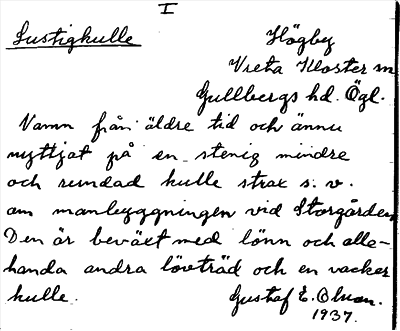 I
Lustigkulle Högby
Vreta Kloster sn
Gullbergs hd. Ögl.
Namn från äldre tid och ännu
nyttjat på en stenig mindre
och rundad kulle strax s. v.
om manbyggningen vid Storgården
Den är beväxt med lönn och alle-
handa andra lövträd och en vacker
kulle. Gustaf E. Olson.
1937.